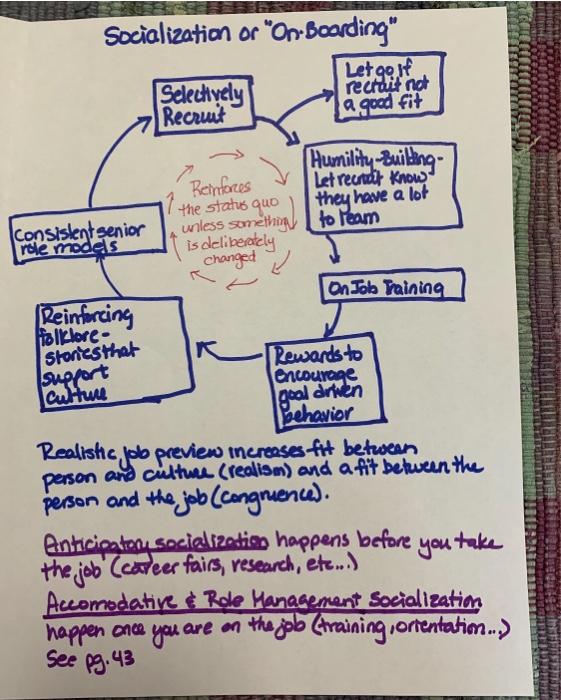 Socialization or "On-Boarding"
Selectively
Recruit
Let go if
recruit not
a good fit
Humility-Building-
Let recruit know
they have a lot
to learn
On Job Training
Rewards to
encourage
goal driven
behavior
Reinforcing
folklore-
stories that
support
culture
Consistent senior
role models
Reinforces
the status quo
unless something
is deliberately
changed
Realistic job preview increases fit between
person and culture (realism) and a fit between the
person and the job (congruence).
Anticipatory socialization happens before you take
the job (career fairs, research, etc...)
Accomodative & Role Management Socialization
happen once you are on the job (training, orientation...)
See pg. 43